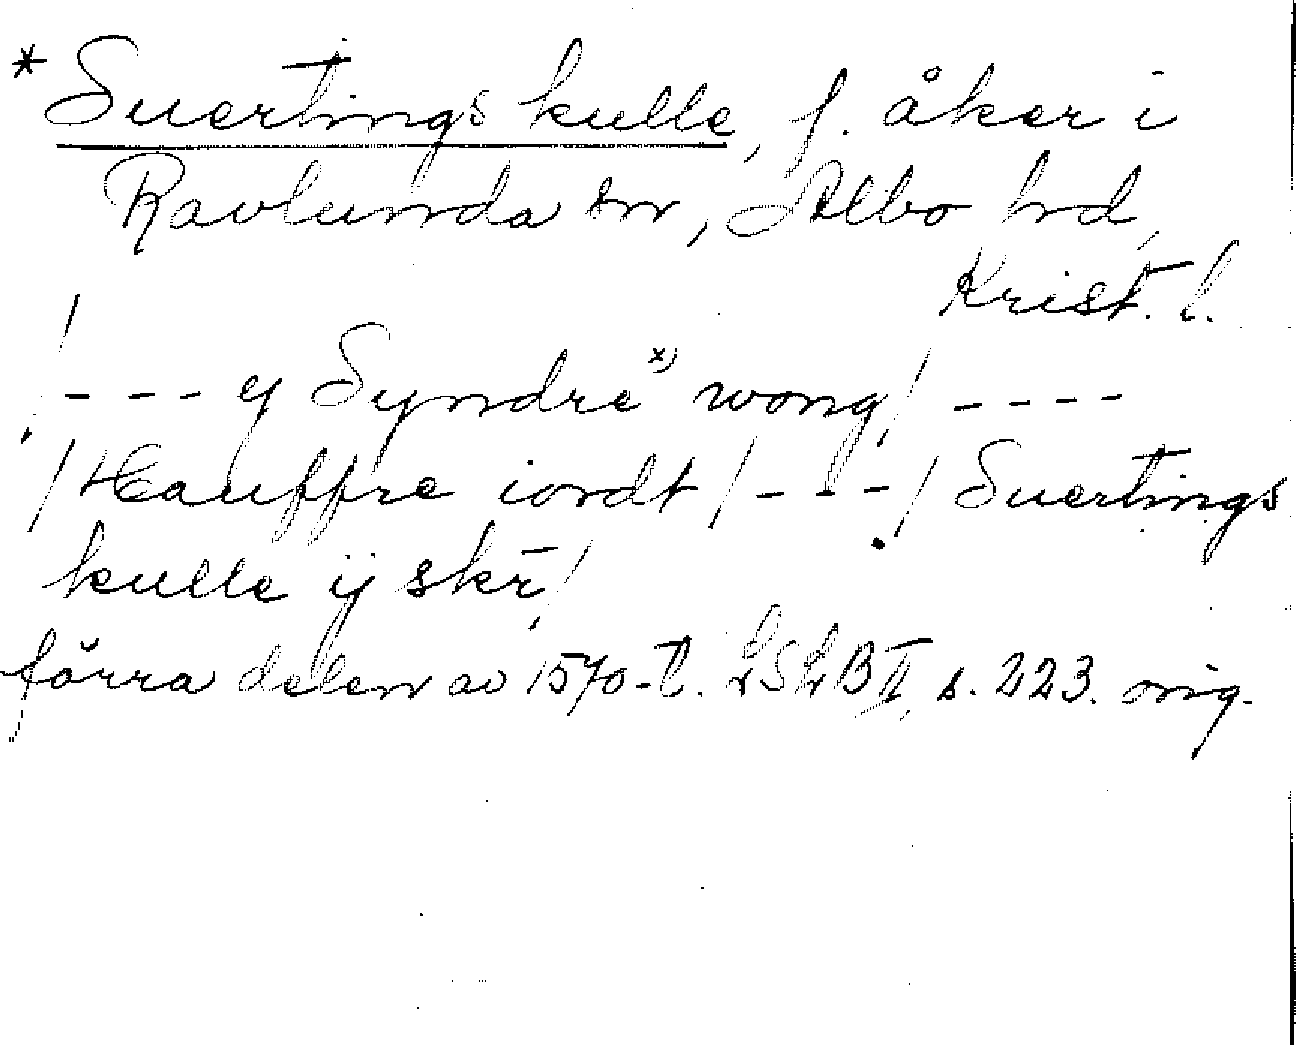 *Suertings kulle, f. åker i
Ravlunda sn, Albo hd,
Krist. l.
/--- y Syndre x) wong/ ----
/Hauffre iordt/---/ Suertings
kulle ij skr̄/
förra delen av 1570-t. LSLB II, s. 223. orig.